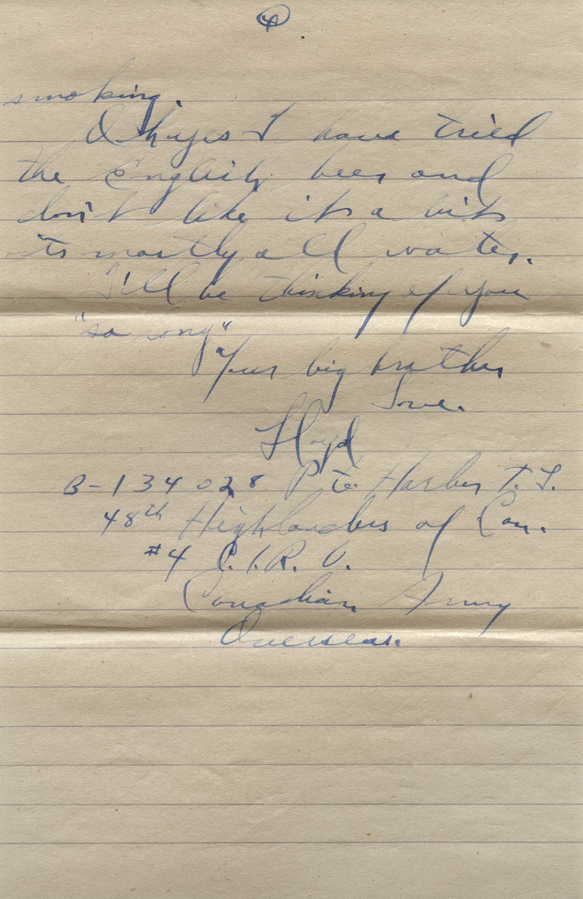 4
smoking.
Oh yes I have tried
the English beer and
don't like it a bit
its mostly all water.
I'll be thinking of you
"so long"
Your big brother
Love.
Lloyd
B-134028 Pte Harber T. L.
48th Highlanders of Can.
#4 C.I.R.U.
Canadian Army
Overseas.